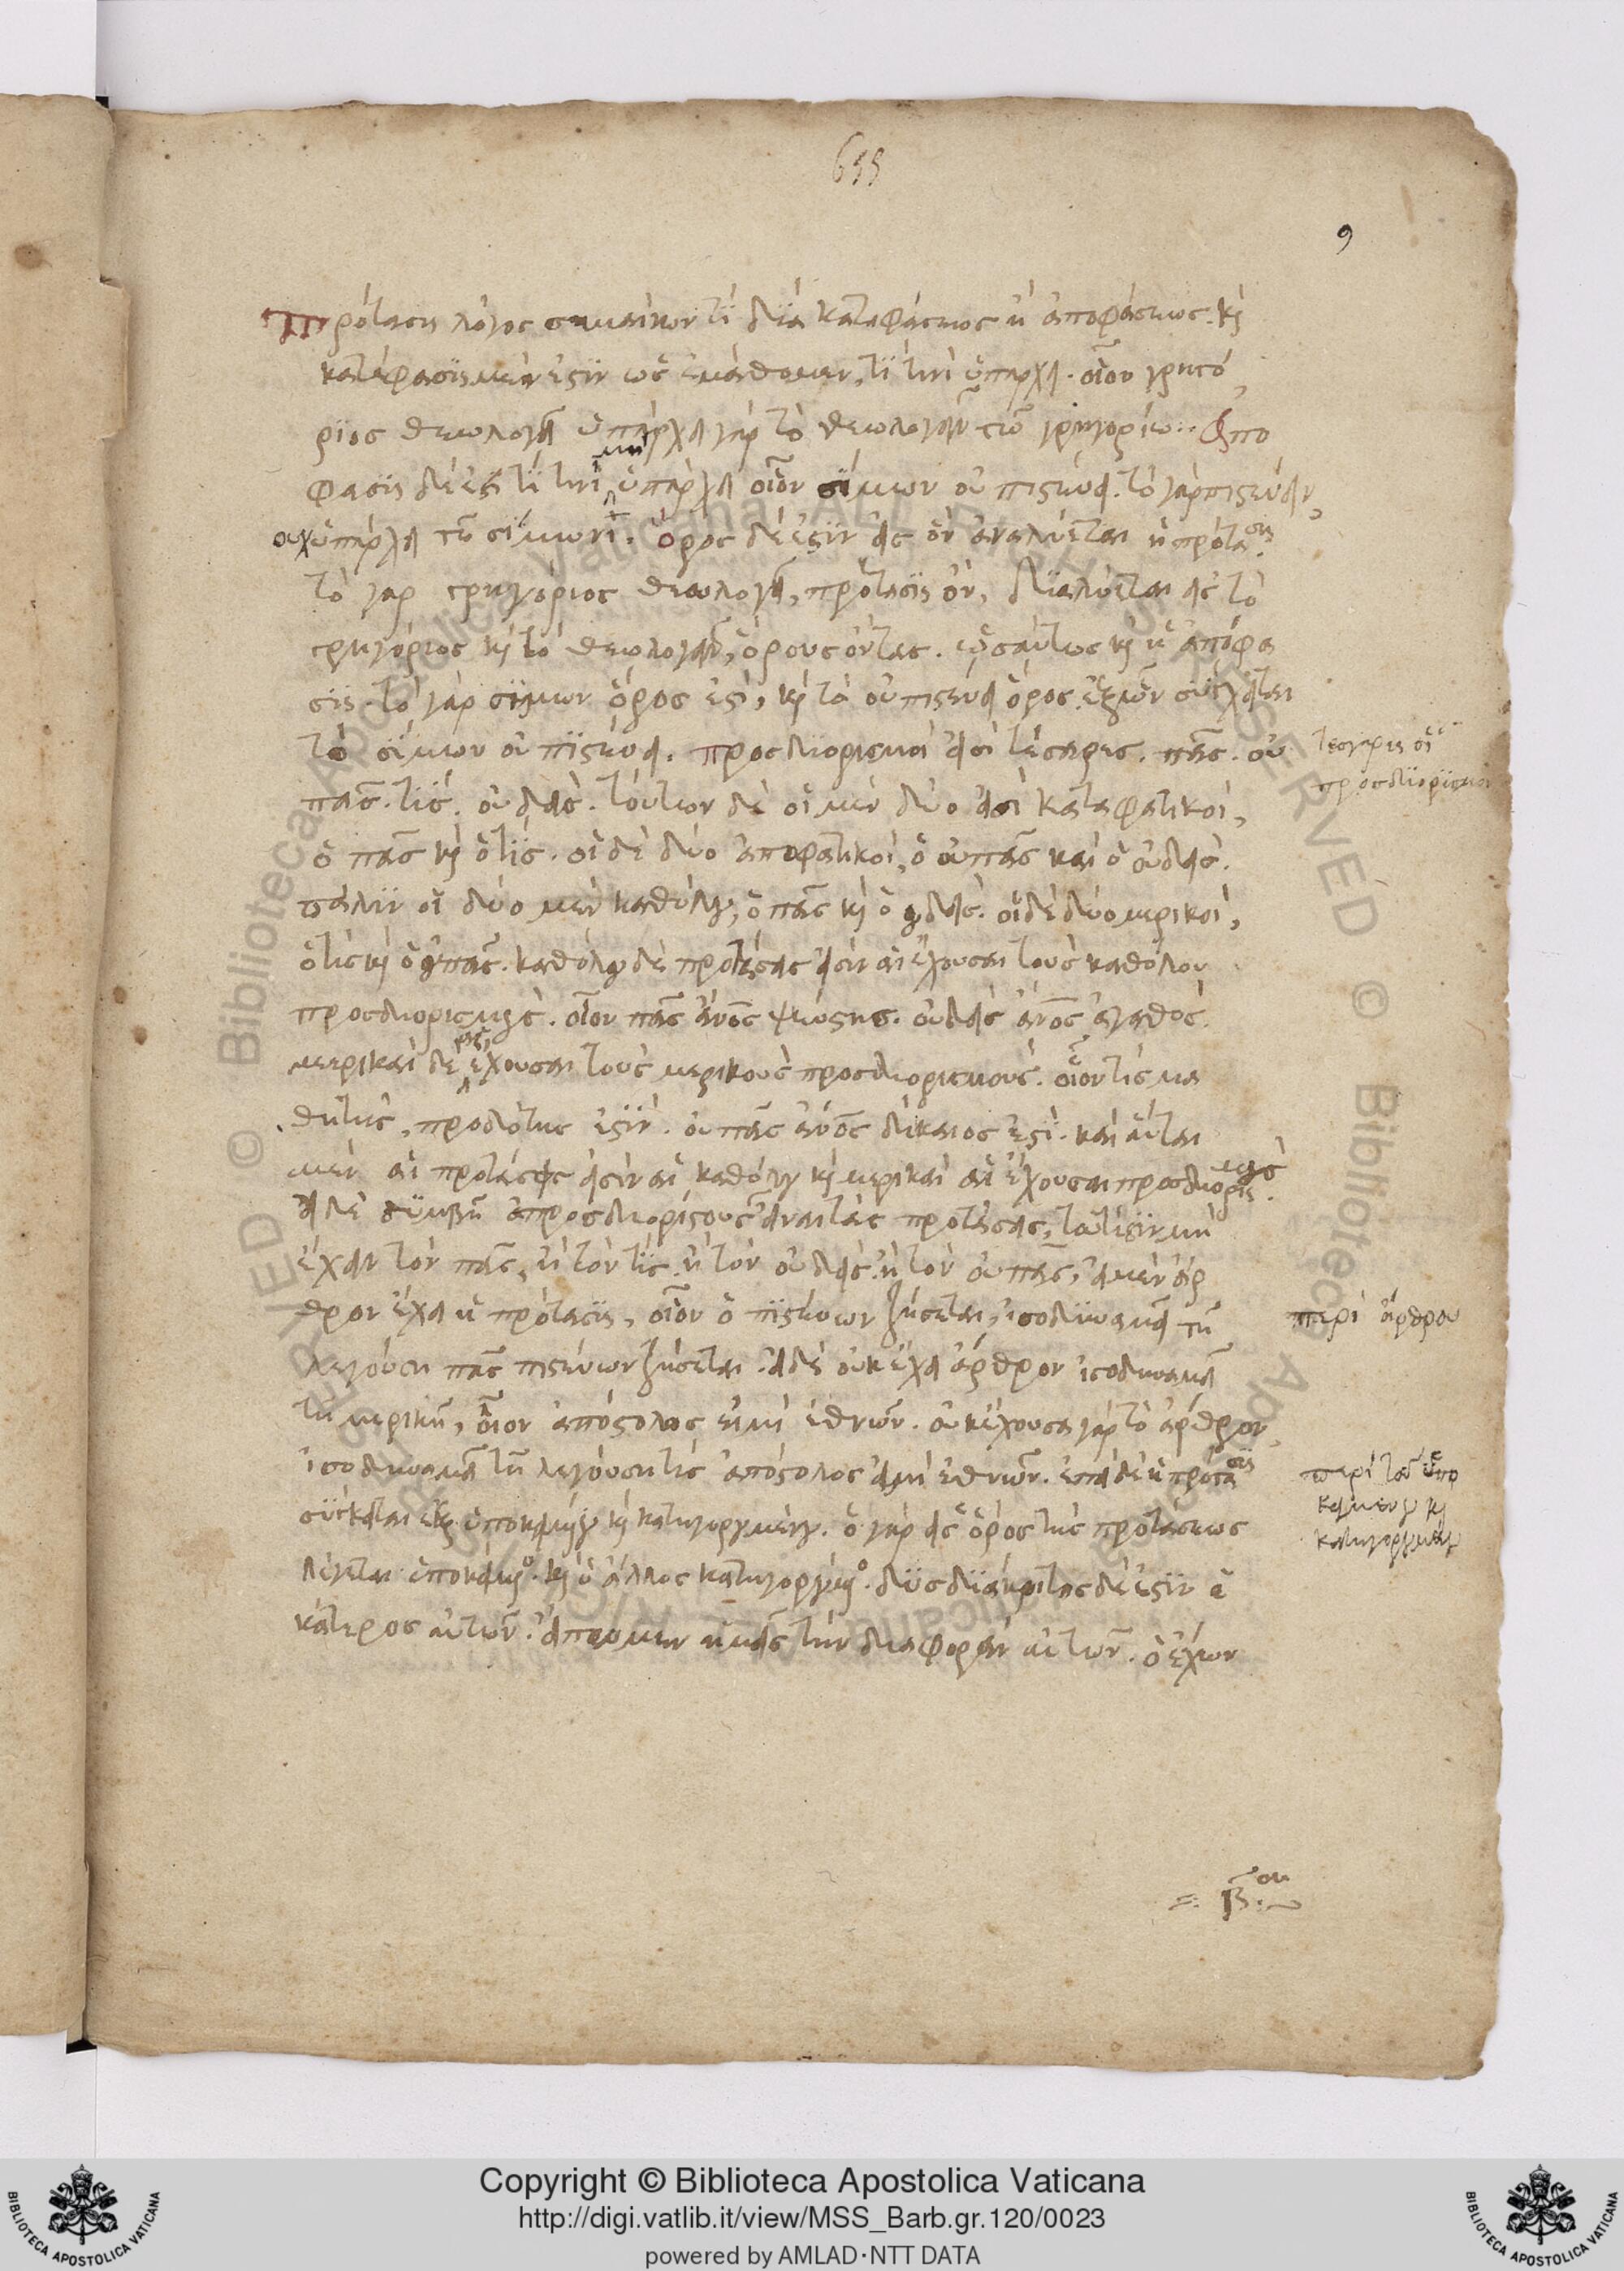 655
9
Πρότασις λόγος σημαίνων τὶ διὰ καταφάσεως ἢ ἀποφάσεως. κ̀
κατάφασις μὲν ἐστὶν ὡς ἐμάθομεν, τὶ τινὶ ὑπάρχει. οἷον γρηγό
ριος θεολογεῖ ὑπάρχει γὰρ τὸ θεολογεῖν τῶ γρηγορίω. Ἀπο
φασις δὲ ἐστὶ τὶ τινὶ μὴ ὑπάρχει οἷον σίμων οὐ πιστεύει. τὸ γὰρ πιστεύειν,
οὐχ ὑπάρχει τῶ σίμωνι. ὅρος δὲ ἐστὶν εἰς ὃν ἀναλύεται ἡ πρότασις.
τὸ γὰρ γρηγόριος θεολογεῖ, πρότασις ὂν, διαλύεται εἰς τὸ
γρηγόριος κ̀ τὸ θεολογεῖν, ὅρους ὄντας. ὡσαύτως κ̀ ἡ ἀπόφα
σις. τὸ γὰρ σίμων ὅρος ἐστὶ, κ̀ τὸ οὐ πιστεύει ὅρος. ἐξ ὧν συνέχεται
τὸ σίμων οὐ πιστεύει. προσδιορισμοὶ εἰσὶ τέσσαρες. πᾶς. οὐ
πᾶς. τίς. οὐδείς. τούτων δὲ οἱ μὲν δύο εἰσὶ καταφατικοὶ,
ὁ πᾶς κ̀ ὁ τίς. οἱ δὲ δύο ἀποφατικοὶ, ὁ οὐ πᾶς καὶ ὁ οὐδείς.
πάλιν οἱ δύο μὲν καθόλου, ὁ πᾶς κ̀ ὁ οὐδείς. οἱ δὲ δύο μερικοὶ,
ὁ τίς κ̀ ὁ οὐ πᾶς. καθόλου δὲ προτάσεις εἰσὶν αἱ ἔχουσαι τοὺς καθόλου
προσδιορισμούς. οἷον πᾶς ἄνος ψεύστης. οὐδεὶς ἄνος ἀγαθός.
μερικαὶ δὲ ἔχουσαι τοὺς μερικοὺς προσδιορισμούς. οἷον τὶς μα
θητὴς, προδότης ἐστίν. οὐ πᾶς ἄνος δίκαιος ἐστί. καὶ αὗται
μὲν αἱ προτάσεις εἰσὶν αἱ καθόλου κ̀ μερικαὶ αἱ ἔχουσαι προσδιορισμούς.
εἰ δὲ συμβῆ ἀπροσδιορίστους εἶναι τὰς προτάσεις, τουτέστιν μὴ
ἔχειν τὸν πᾶς, ἢ τὸν τίς. ἢ τὸν οὐδείς. ἢ τὸν οὐ πᾶς, εἰ μὲν ἄρ
θρον ἔχει ἡ πρότασις, οἷον ὁ πιστεύων ζήσεται, ἰσοδυναμεῖ τῆ
λεγούση πᾶς πιστεύων ζήσεται. εἰ δὲ οὐκ ἔχει ἄρθρον ἰσοδυναμεῖ
τῆ μερικῆ, οἷον ἀπόστολος εἰμὶ ἐθνῶν. οὐκ ἔχουσα γὰρ τὸ ἄρθρον
ἰσοδυναμεῖ τῆ λεγούση τὶς ἀπόστολος εἰμὶ ἐθνῶν. ἐπεὶ δὲ ἡ πρότασις
σύγκειται ἐξ ὑποκειμένου κ̀ κατηγορουμένου. ὁ γὰρ εἷς ὅρος τῆς προτάσεως
λέγεται ὑποκείμενος. κ̀ ὁ ἄλλος κατηγορούμενος. δυσδιάκριτος δὲ ἐστὶν ἑ
κάτερος αὐτῶν. εἴπωμεν ἡμεῖς τὴν διαφορὰν αὐτῶν. ὁ ἔχων
τέσσαρες οἱ
προσδιορισμοί
περὶ ἄρθρου
περὶ τοῦ ὑπο
κειμένου κ̀
κατηγορουμένου
Copyright © Biblioteca Apostolica Vaticana
http://digi.vatlib.it/view/MSS_Barb.gr.120/0023
powered by AMLAD·NTT DATA